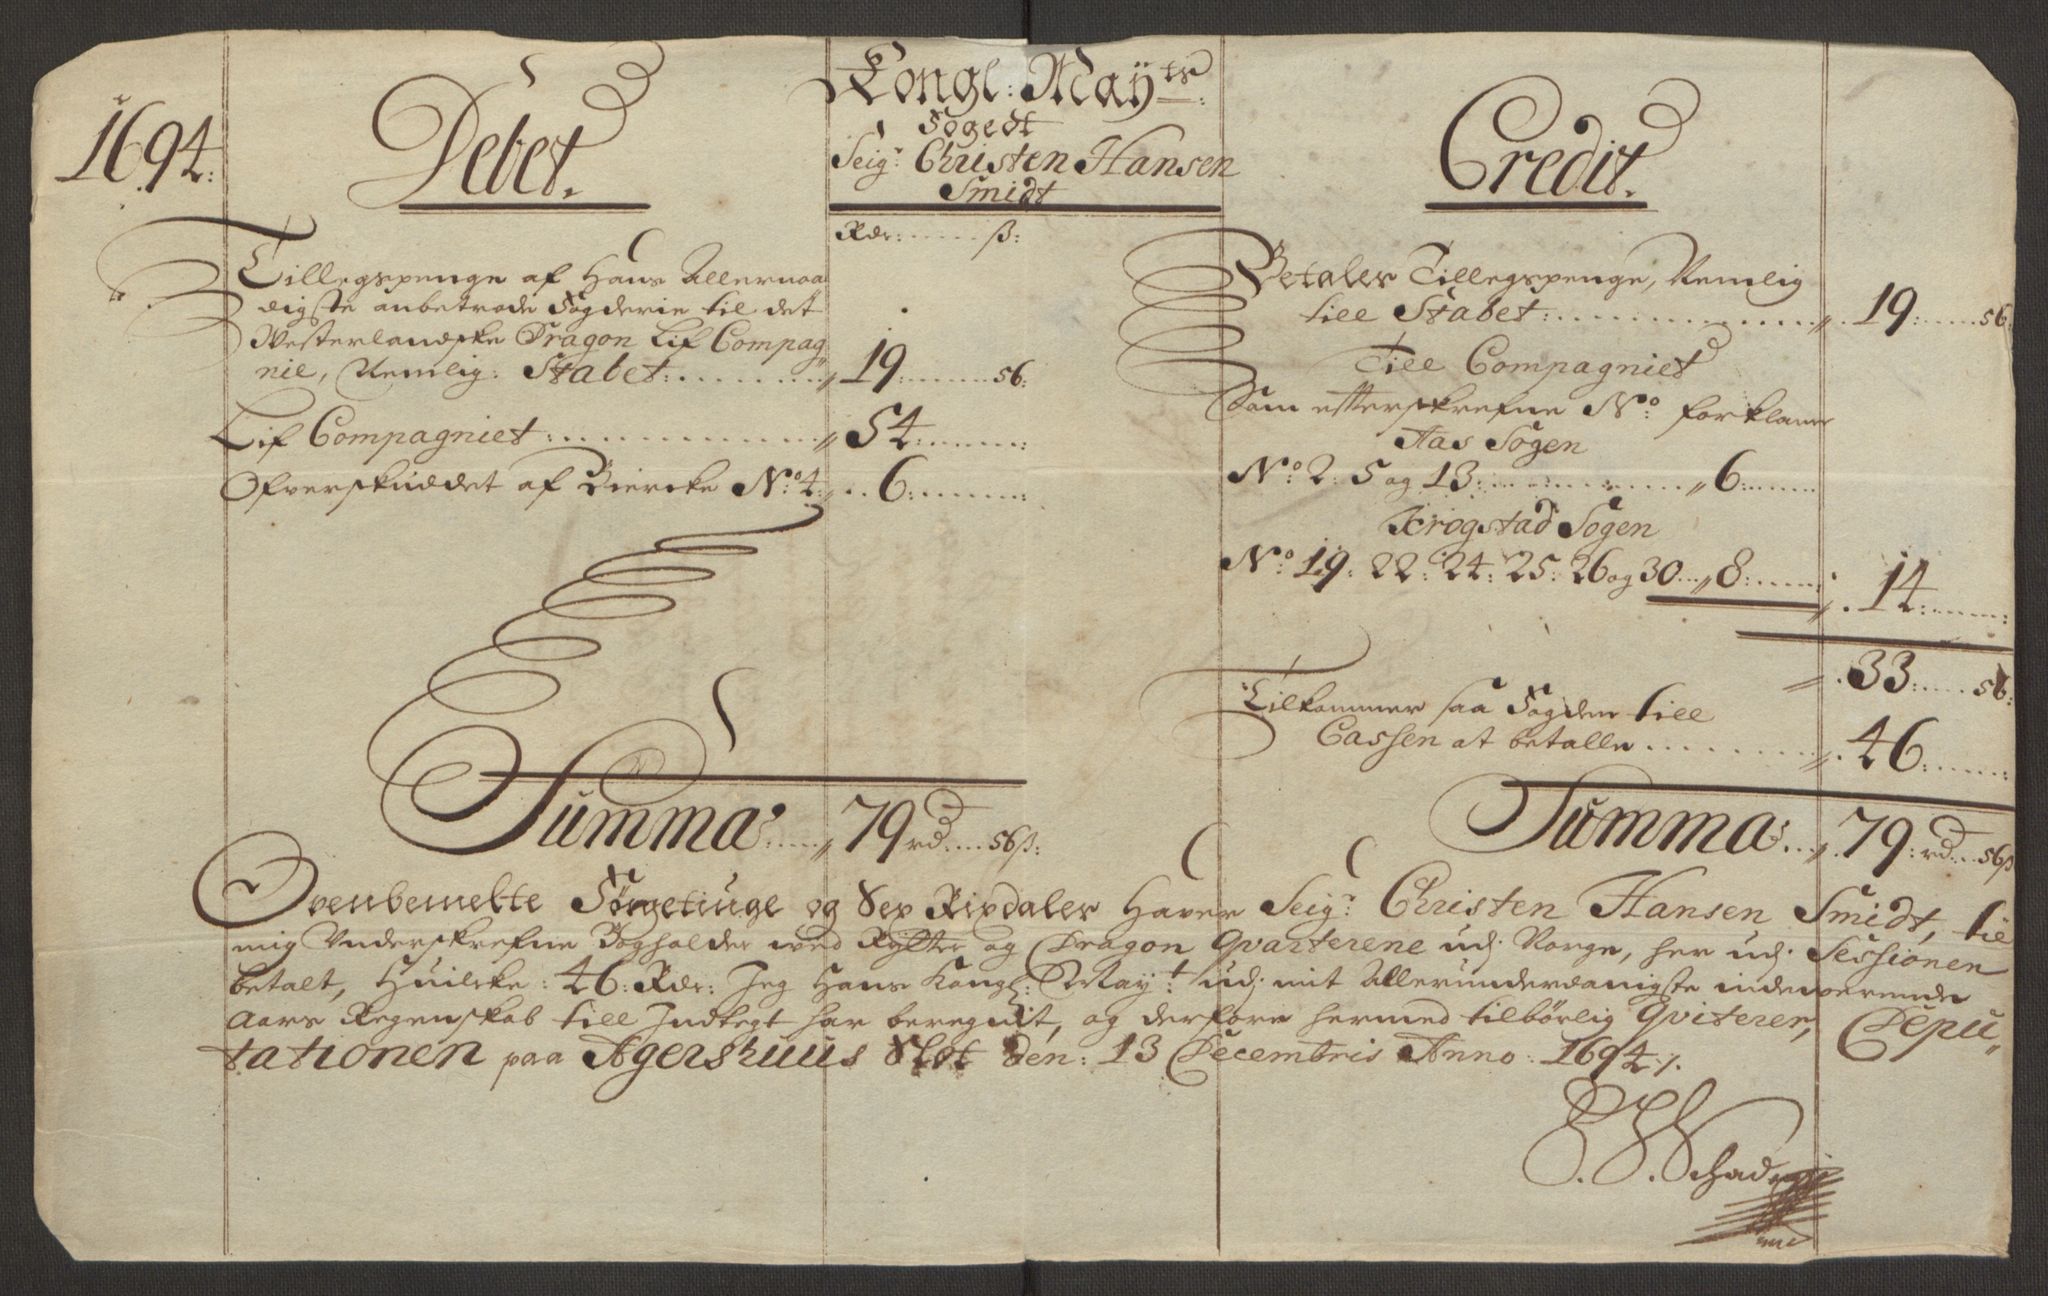 1694.
Debet.
Kongl: Mayts
Fogedt
Seigr: Christen Hansen
Smidt
Rdr: ß:
Tillegspenge af Hans Allernaa
digste anbetrode Fogderie til det
Westerlandske Dragon Lif Compag„
nie, Nemlig: Stabet: 19 56:
Lif Compagniet: 54:
Ofverskuddet af Biercke No: 4: 6:
Summa 79 rd 56 ß:
Credit.
Betaler Tillegspenge, Nemlig
till Stabet: 19: 56:
Till Compagniet
Som efterskrefne No: forklarer
Aas Sogen
No: 2: 5 og 13: 6:
Krogstad Sogen
No: 19: 22: 24: 25: 26 og 30 8: 14:
33: 56:
Tilkommer saa Fogden till
Cassen at betalle 46
Summa 79: rd 56 ß
Ovenbemelte Sex Rixdaler Haver Seigr: Christen Hansen Smidt, til
mig Underskrefne Bogholder ved Rÿtter og Dragon Qvarterene udj Norge, her udj Sessionen
betalt, Huilcke: 46: Rdr: Jeg Hans Kongl: Mayt: udj mit Allerunderdanigste indeverende
Aars Regenskab till Indtegt har beregnit, og derfore hermed tilbörlig Qviterer, Depu„
tationen paa Agershuus Slot den: 13 Decembris Anno: 1694 /.